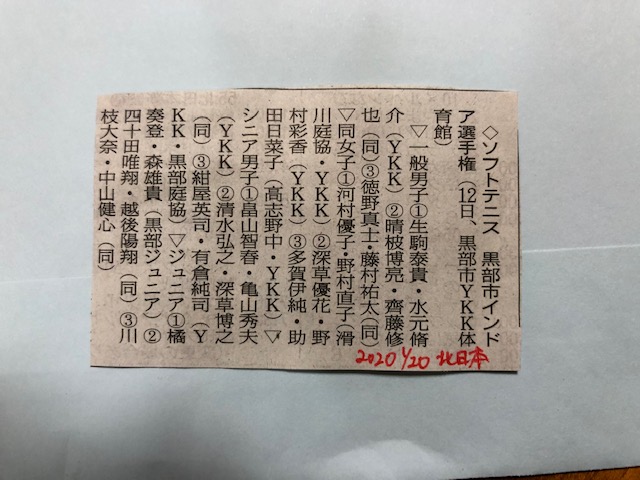 ◇ソフトテニス　黒部市インド
ア選手権（12日、黒部市ＹＫＫ体
育館）
▽一般男子①生駒泰貴・水元脩
介（ＹＫＫ）②晴枝博亮・齊藤修
也（同）③徳野真士・藤村祐太（同）
▽同女子①河村優子・野村直子（滑
川庭協・ＹＫＫ）②深草優花・野
村彩香（ＹＫＫ）③多賀伊純・助
田日菜子（高志野中・ＹＫＫ）▽
シニア男子①畠山智春・亀山秀夫
（ＹＫＫ）②清水弘之・深草博之
（同）③紺屋英司・有倉純司（Ｙ
ＫＫ・黒部庭協）▽ジュニア①橘
奏登・森雄貴（黒部ジュニア）②
四十田唯翔・越後陽翔（同）③川
枝大奈・中山健心（同）
2020 1/20 北日本